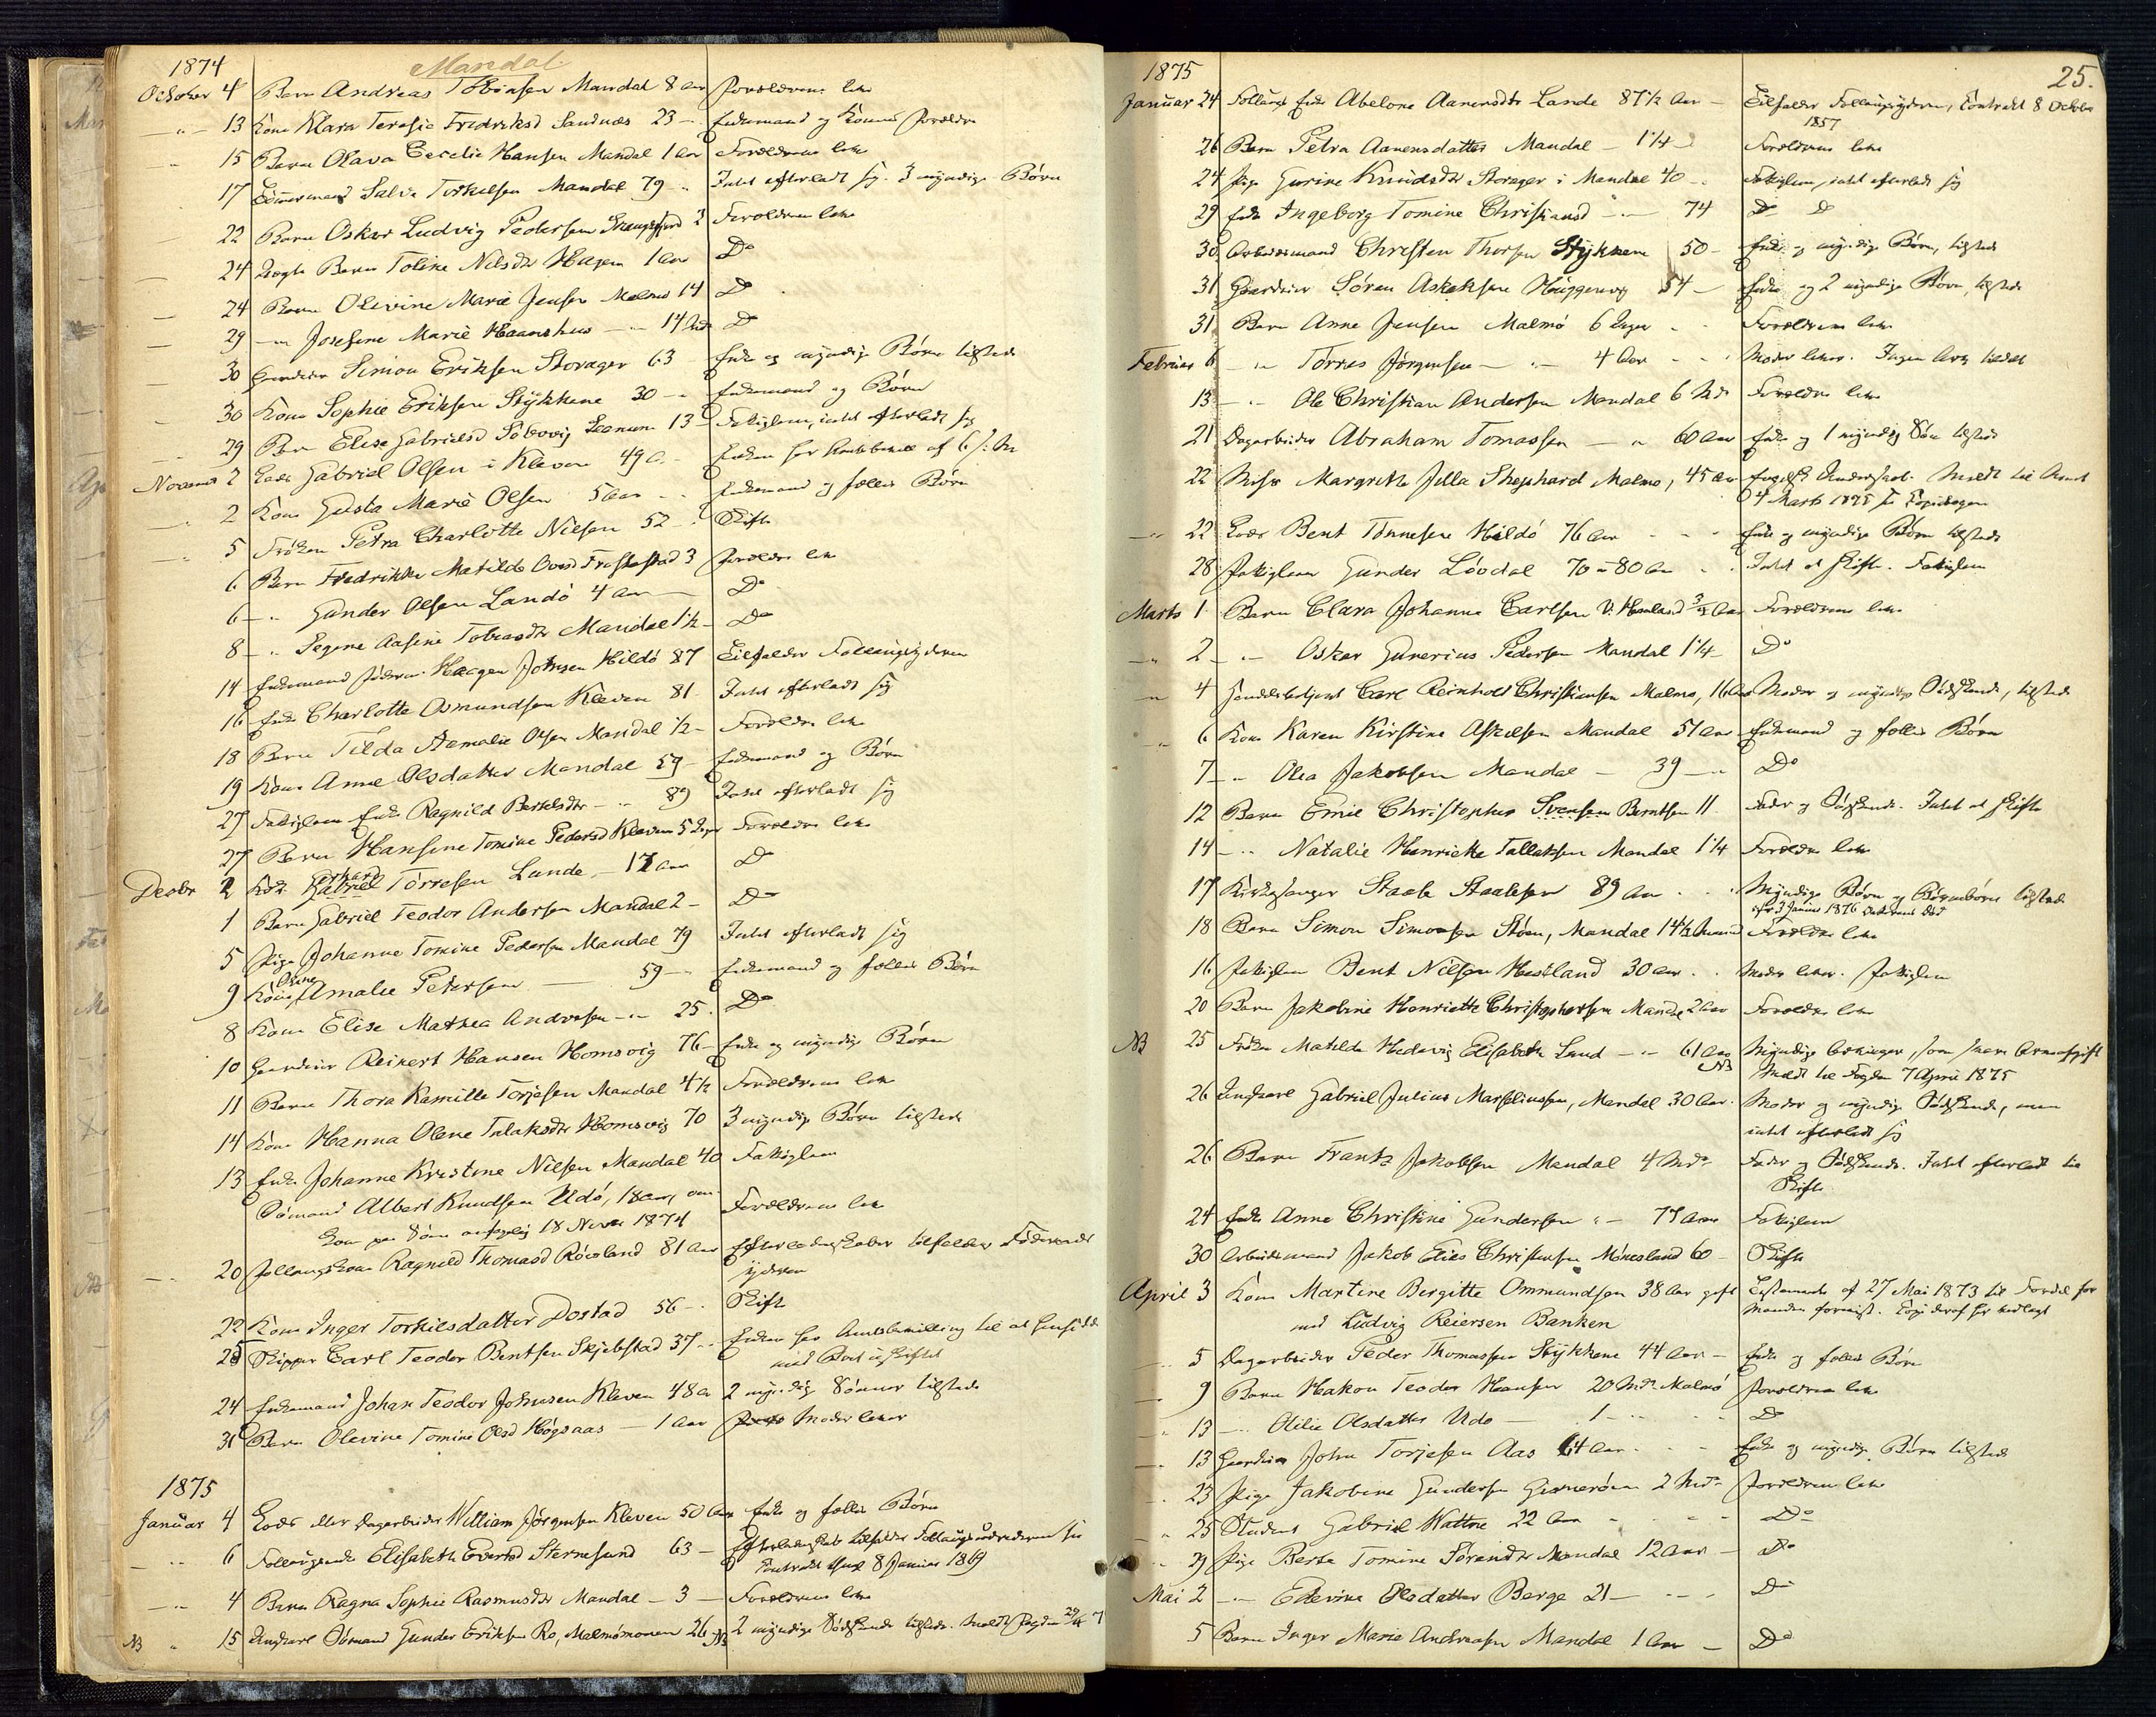 1874 Mandal
October 4 Barn Andreas Tobiasen Mandal 8 Aar Forældrene leve
" 13 Kone Klara Teresie Fredriksd Sandnæs 23 - Enkemand og Konens Forældre
15 Barn Olava Cecelie Hansen Mandal 1 Aar Forældrene leve
17 Tømmermand Salve Torkelsen Mandal 79 " Intet efterladt sig. 3 myndige Børn
22 Barn Oskar Ludvig Pedersen 3 Forældrene leve
24 Uægte Barn Toline Nilsdtr Hagen 1 Aar Do
24 Barn Olevine Marie Jensen Malmø 14 Do
29 -"- Josefine Marie 14 Do
30 Gaardeier Simon Eriksen Storager 63 Enke og myndige Børn tilstede
30 Kone Sophie Eriksen Stykkene 30 - Enkemand og Børn
29 Barn Elise Gabrielsd 13 Fattiglem, intet efterladt sig
November 2 Lods Gabriel Olsen i Kleven 49 A. Enken har
2 Kone Gusta Marie Olsen Enkemand og fælles Børn
5 Frøken Petra Charlotte Nilsen 52 - Skifte
6 Barn Fredrikke Matilde 3 Forældre leve
6 - " Gunder Olsen Landø 4 Aar Do
8 - " Segine Aasine Tobiasdtr Mandal 1½ - Do
14 Enkemand Haagen Johnsen Hildø 87 Tilfalder Follaugsyderen
16 Enke Charlotte Osmundsen Kleven 81 Intet efterladt sig
18 Barn Tilda Aamalie Olsen Mandal ½ - Forældre leve
19 Kone Anne Olsdatter Mandal 59 - Enkemand og Børn
27 Fattiglem Enke Ragnild Bertelsdtr - " 89 Intet efterladt sig
27 Barn Hansine Tomine Pedersd Kleven 5 Dage Forældre leve
Decbr 2 Torresen Lande - 17 Aar Do
1 Barn Gabriel Teodor Andersen Mandal 2 - Do
5 Pige Johanne Tomine Pedersen Mandal 79 Intet efterladt sig
9 Kone Amalie Petersen 59 - Enkemand og fælles Børn
8 Kone Elise Mathea Andresen - " 25. Do
10 Gaardeier Reinert Hansen Homsvig 76 - Enke og myndige Børn
11 Barn Thora Kamille Torjesen Mandal 4½ Forældrene leve
14 Kone Hanna Olene Tolaksdtr Homsvig 70 3 myndige Børn tilstede
13 Enke Johanne Kristine Nilsen Mandal 40 Fattiglem
Sømand Albert Knudsen Udø, 18 Aar, om- Forældrene leve
kom paa Søen 18 Novbr 1874
20 Follaugskone Ragnild Thomasd Røosland 81 Aar Efterladenskaber tilfalder Føderaads
yderen
22 Kone Inger Torkilsdatter Dostad 56 - Skifte
25 Skipper Carl Teodor Bentsen Skjebstad 37 - Enken har Amtsbevilling til at hensidde
med Boet uskiftet
24 Enkemand Johan Teodor Johnsen Kleven 48 A 2 myndige Sønner tilstede
31 Barn Olevine Tomine Olsd Høgsaas - 1 Aar Moder lever
1875
Januar 4 Lods eller Dagarbeider William Jørgensen Kleven 50 Aar Enke og fælles Børn
- " 6 Follaugsenke Elisabeth Evertsd Sternesund 63 - Efterladenskab tilfalder
Contrakt 8 Januar 1869
- " 4 Barn Ragna Sophie Rasmusdtr Mandal - 3 - Forældrene leve
NB " 15 Ungkarl Sømand Gunder Eriksen Ro, Malmømonen 26 NB 2 myndige Sødskende tilstede. Meldt Fogden
25.
1875
Januar 24 Follaugs Enke Abelone Aanensdtr Lande 87½ Aar - Tilfalder Follaugsyderen, Contrakt 8 October
1857
26 Barn Petra Aanensdatter Mandal - 1¼ Forældrene leve
24 Pige Gurine Knudsdtr Storager i Mandal 40 - Fattiglem, intet efterladt sig
29 Enke Ingeborg Tomine Christiansd - " - 74 Do Do
30 Arbeidsmand Christen Thorsen Stykkene 50 - Enke og myndige Børn, tilstede
31 Gaardeier Søren Askeksen 54 - Enke og 2 myndige Børn, tilstede
31 Barn Anne Jensen Malmø 6 Dage - Forældrene leve
Februar 6 - " Torres Jørgensen - " - 4 Aar - Moder lever. Ingen Arv tildelt
13 - " Ole Christian Andersen Mandal 6 Mdr Forældre leve
21 Dagarbeider Abraham Tomassen - " 60 Aar Enke og 1 myndig Søn tilstede
22 Margrethe Jella Shephard Malmø, 45 Aar Engelsk Undersaat. Meldt til Amtet
4 Marts 1875
- " 22 Lods Bent Tønnesen Hildø 76 Aar - Enke og myndige Børn tilstede
28 Fattiglem Gunder Løvdal 70 a 80 Aar - Intet at skifte. Fattiglem
Marts 1 Barn Clara Johanne Carlsen Forældrene leve
- " 2 - " Oskar Gunerius Pedersen Mandal 1¼ - Do
- " 4 Handelsbetjent Carl Reinholt Christiansen Malmø, 16 Aar Moder og myndige Sødskende, tilstede
- " 6 Kone Karen Kirstine Askelsen Mandal 51 Aar Enkemand og fælles Børn
7 - " Olea Jakobsen Mandal - 39 - " Do
12 Barn Emil Christopher Svensen Berntsen 11 Fader og Sødskende. Intet at skifte
14 - " Natalie Henriette Tallaksen Mandal 1¼ Forældre leve
17 Kirkesanger Staale Staalesen 89 Aar - Myndige Børn og Børnebørn tilstede
3 Januar 1876
18 Barn Simon Simonsen Støen, Mandal 14½ Forældre leve
16 Fattiglem Bent Nilsen 30 Aar - Moder lever. Fattiglem
20 Barn Jakobine Henriette Christophersen Mandal 2 Aar Forældre leve
NB 25 Frøken Matilde Hedevig Elisabeth Lund - " 61 Aar NB Myndige Arvinger, som svare Arveafgift
Meldt til Fogden 7 April 1875
26 Ungkarl Gabriel Julius Marseliussen, Mandal 30 Aar. Moder og myndige Sødskende, men
intet efterladt sig
26 Barn Frantz Jakobsen Mandal 4 Mdr Fader og Sødskende. Intet efterladt til
Skifte
24 Enke Anne Christine Gundersen " - 77 Aar Fattiglem
30 Arbeidsmand Jakob Elias Christensen Mønesland 60 - Skifte
April 3 Kone Martine Birgitte Ommundsen 38 Aar gift Testamente af 27 Mai 1873 til Fordel for
med Ludvig Reiersen Banken Manden
- " 5 Dagarbeider Peder Thomassen Stykkene 44 Aar - Enke og fælles Børn
- " 9 Barn Hakon Teodor Hansen 20 Mdr Malmø Forældrene leve
- " 13 - " Otilie Olsdatter Udø 1 - " Do
- " 13 Gaardeier John Torjesen Aas 64 Aar - Enke og myndige Børn tilstede
- " 23 Pige Jakobine Gundersen 2 Mdr Forældrene leve
" 25 Student Gabriel Wattne 22 Aar - Do
- " 29 Pige Berte Tomine Sørensdtr Mandal 12 Aar - Do
Mai 2 - " Edevine Olsdatter Berge 21 - Do
5 Barn Inger Marie Andreasen Mandal 1 Aar - Do